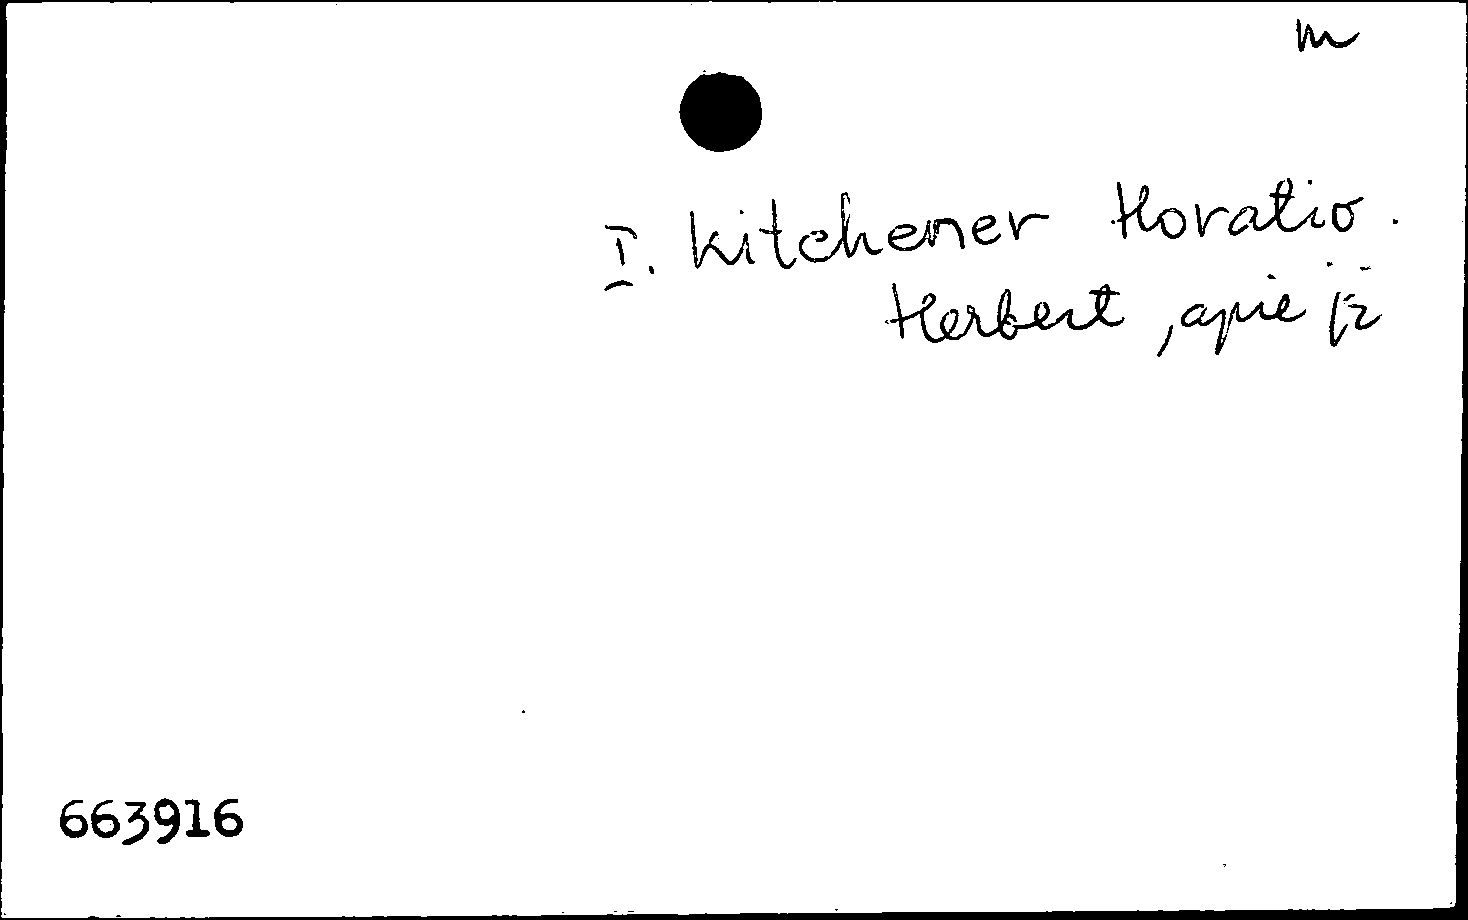 m
I. Kitchener Horatio.
Herbert, apie jį
663916